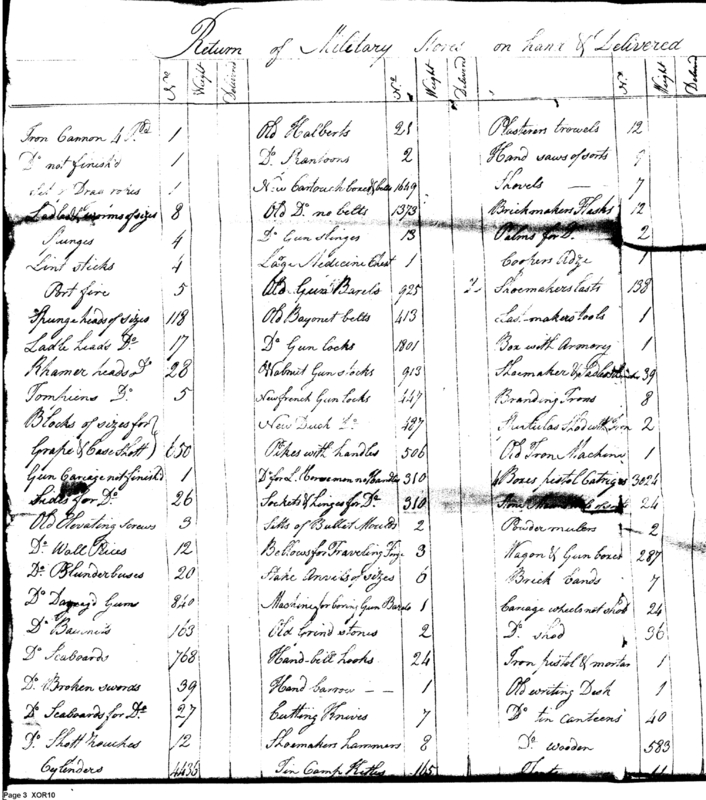 Return of Military Stores on hand & Delivered
No Weight Delivered No Weight Delivered No Weight Delivered
Iron Cannon 4 Pd 1
Do not finish'd 1
Set Drag ropes 1
Ladles & worms of sizes 8
Spunges 4
Lint sticks 4
Port fire 5
Spunge heads of sizes 118
Ladle heads Do 17
Rhamer heads Do 28
Tomkiens Do 5
Blocks of sizes for
Grape & Case Shott 650
Gun Cariage not finish'd 1
Sides for Do 26
Old Elevating screws 3
Do Wall Pieces 12
Do Blunderbuses 20
Do Damag'd Guns 840
Do 163
Do Scaboards 768
Do Broken swords 39
Do Scaboards for Do 27
Do Shott Pouches 12
Cylenders 4436
Old Halberts 21
Do 2
New Cartouch boxes & belts 1649
Old Do no belts 1373
Do Gun slinges 13
Large Medicine Chest 1
Old Gun Barels 925
Old Bayonet belts 413
Do Gun locks 1801
Walnut Gun stocks 913
New french Gun locks 447
New Duck Do 487
Pikes with handles 506
Do for L. Horsemen no Handles 310
Sockets & hinges for Do 310
Setts of Bullet Moulds 2
Bellows for Traveling Forge 3
Stake Anvils of sizes 6
Mashine for boring Gun Barels 1
Old Grind stones 2
Hand-bill hooks 24
Hand barrow — — 1
Cutting Knives 7
Shoemakers hammers 8
Tin Camp Kitles 165
Plasterers trowels 12
Hand saws of sorts 9
Shovels — 7
Brickmakers Flasks 12
Palms for Do 2
Coopers Adze 1
Shoemakers lasts 138
Last makers tools 1
Box with Armory 1
Shoemaker & 39
Branding Irons 8
Shod with Iron 2
Old Iron Machine 1
Boxes pistol Catriges 3024
24
Powder 2
Wagon & Gun boxes 287
Brick bands 7
Cariage wheels not shod 24
Do shod 36
Iron pistol & mortar 1
Old writing Desk 1
Do tin canteens 40
Do wooden 583
Tents 11
Page 3 XOR10